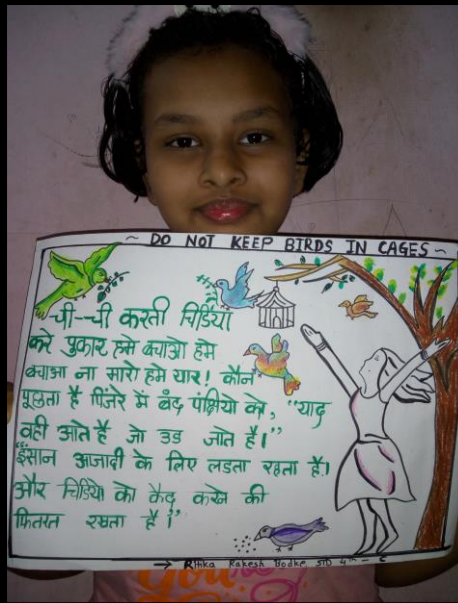 ~ DO NOT KEEP BIRDS IN CAGES ~
ची-ची करती चिडियाँ
करे पुकार हमे बचाओ हमे
बचाआ ना मारो हमे यार! कौन
पूछता है पींजरे में बंद पंछीयो को, "याद
वही आते है जो उड जाते है।"
"इंसान आजादी के लिए लडता रहता है।
और चिडियो को कैद करने की
फितरत रखता है।"
→ Ritika Rakesh Bodke STD 4th - C
You